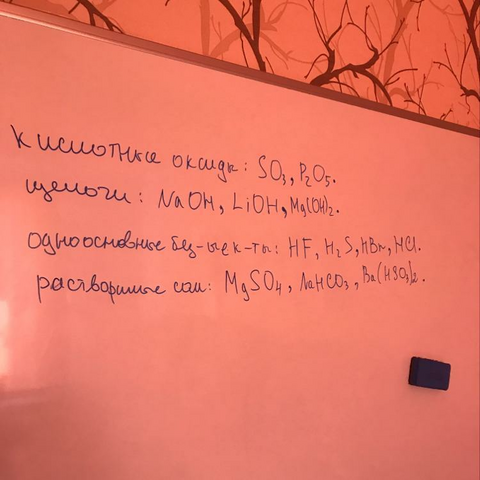 кислотные оксиды: SO₃, P₂O₅.
щелочи: NaOH, LiOH, Mg(OH)₂.
одноосновные без-ые к-ты: HF, H₂S, HBr, HCl.
растворимые соли: MgSO₄, NaHCO₃, Ba(HSO₃)₂.